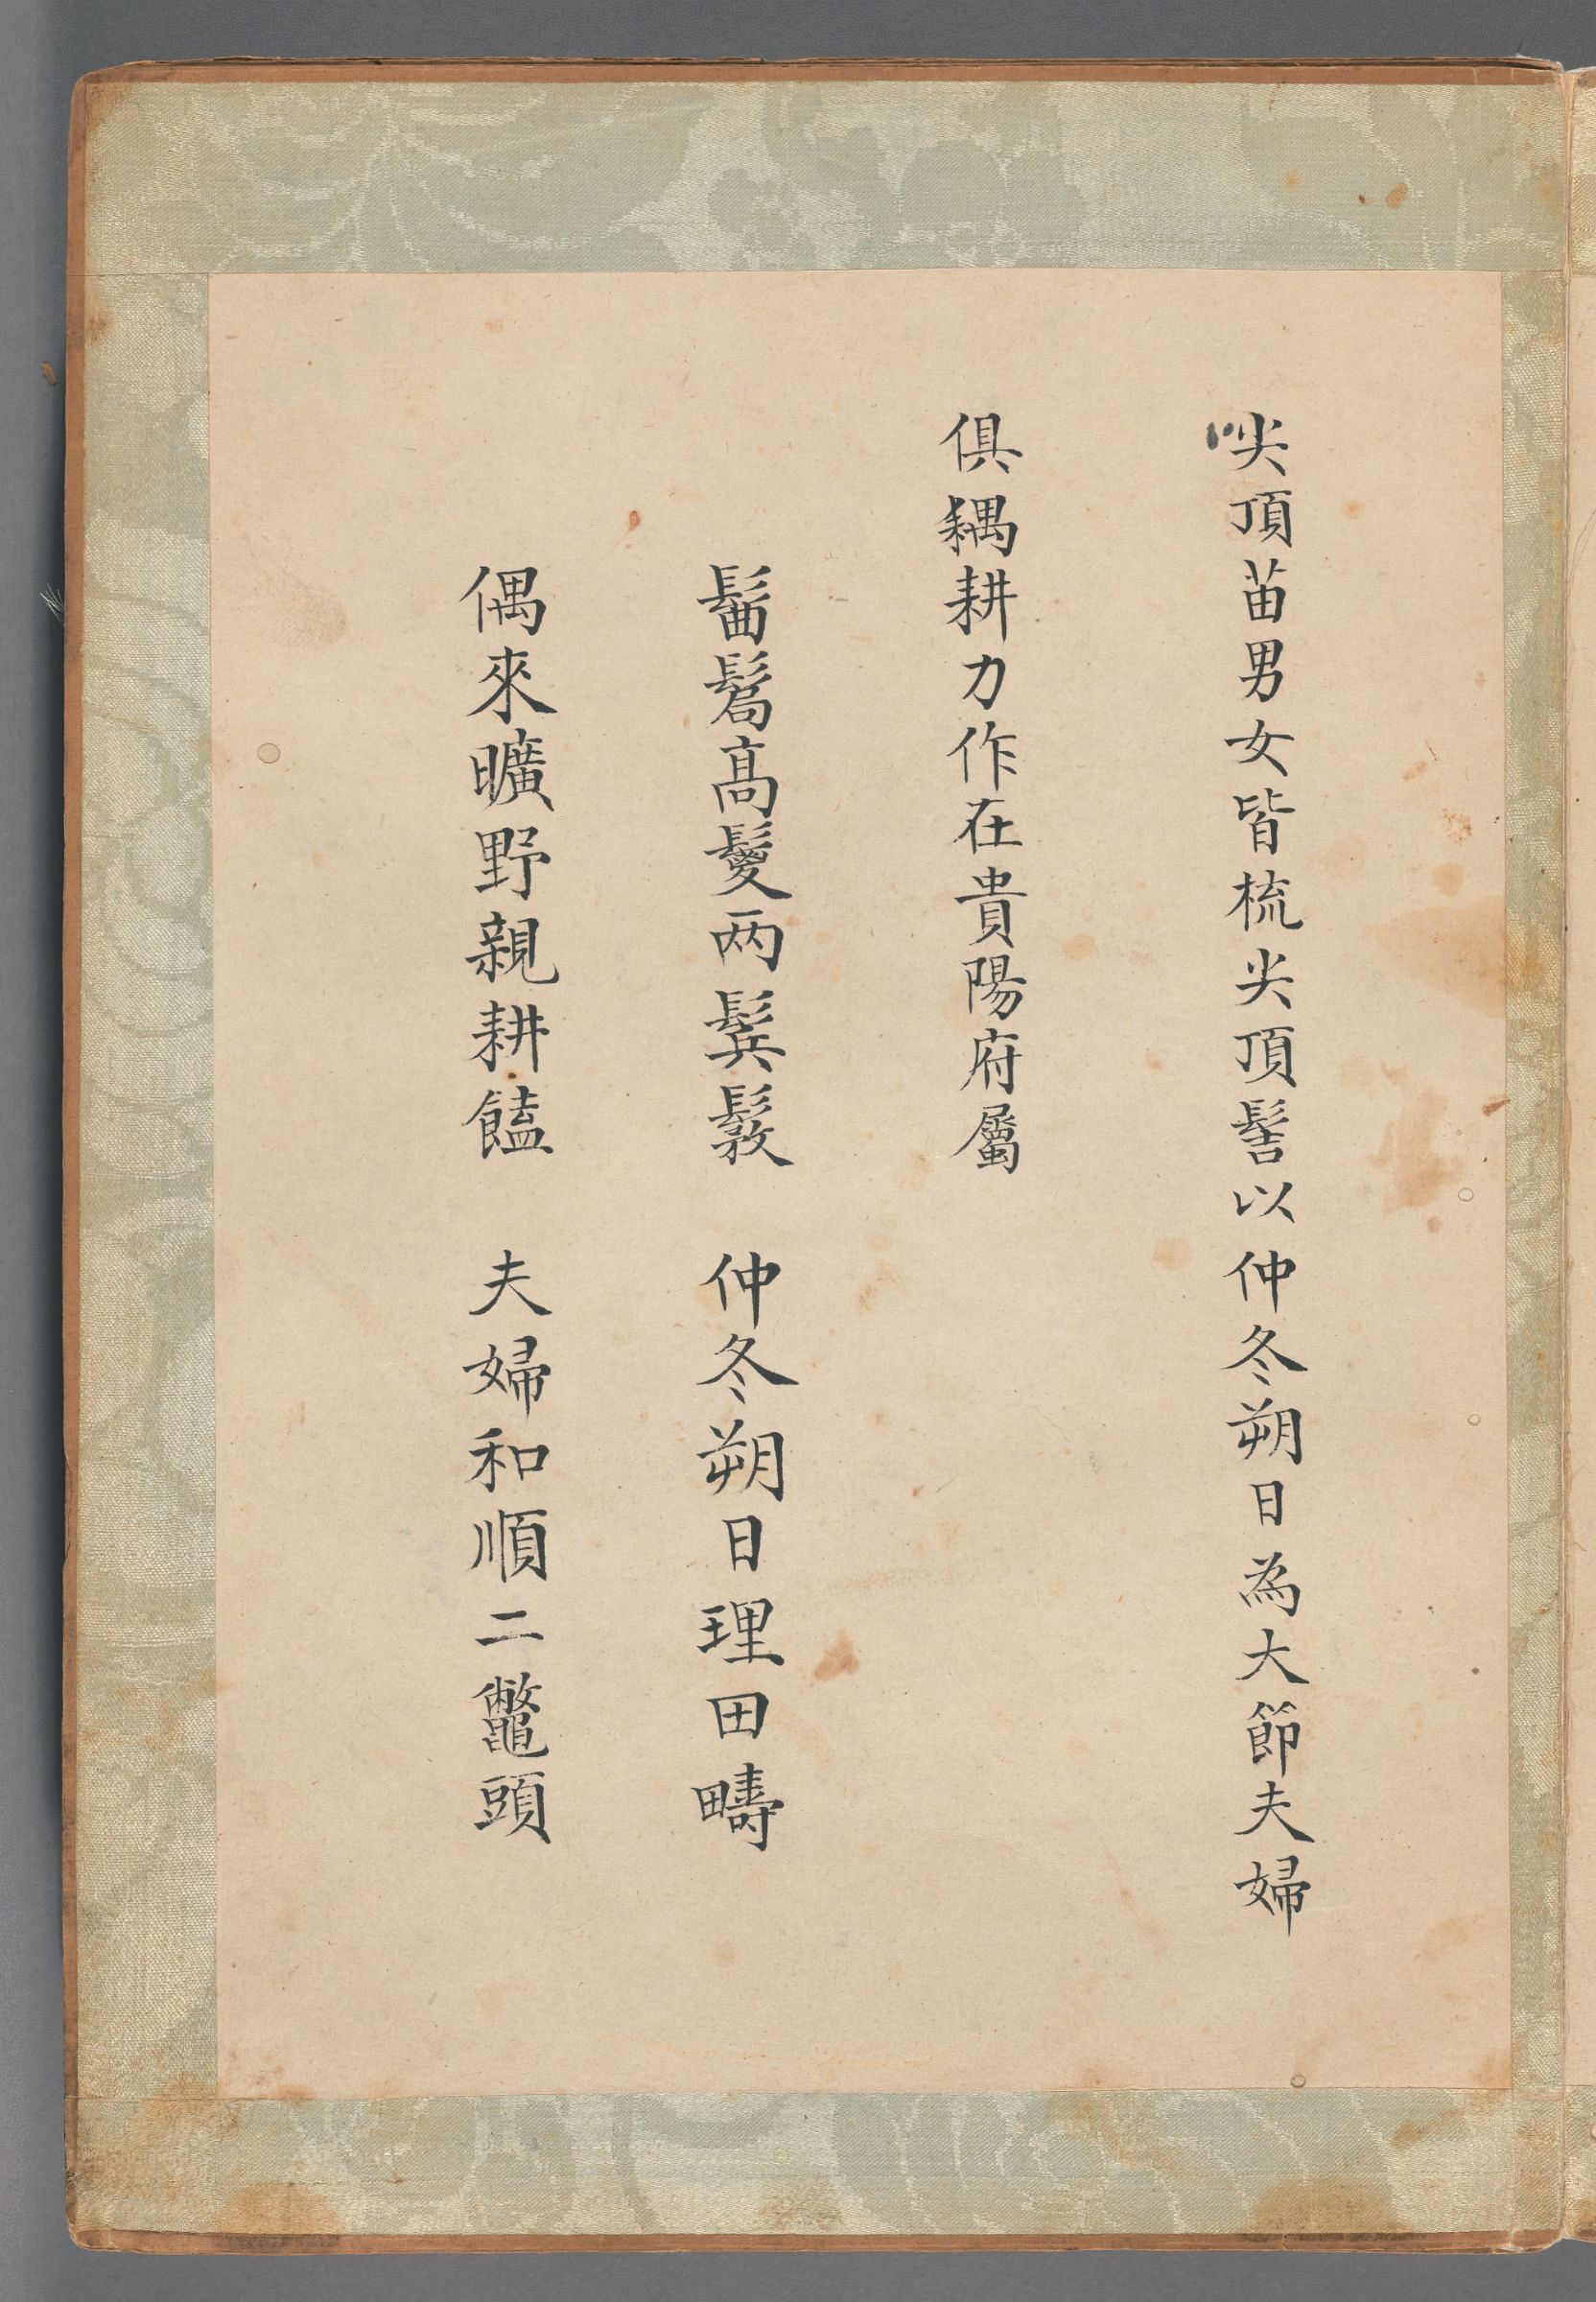 尖頂苗男女皆梳尖頂髻以仲冬朔日為大節夫婦
俱耦耕力作在貴陽府屬
髷髙两鬂 仲冬朔日理田疇
偶來曠野親耕饁 夫婦和順二鼈頭